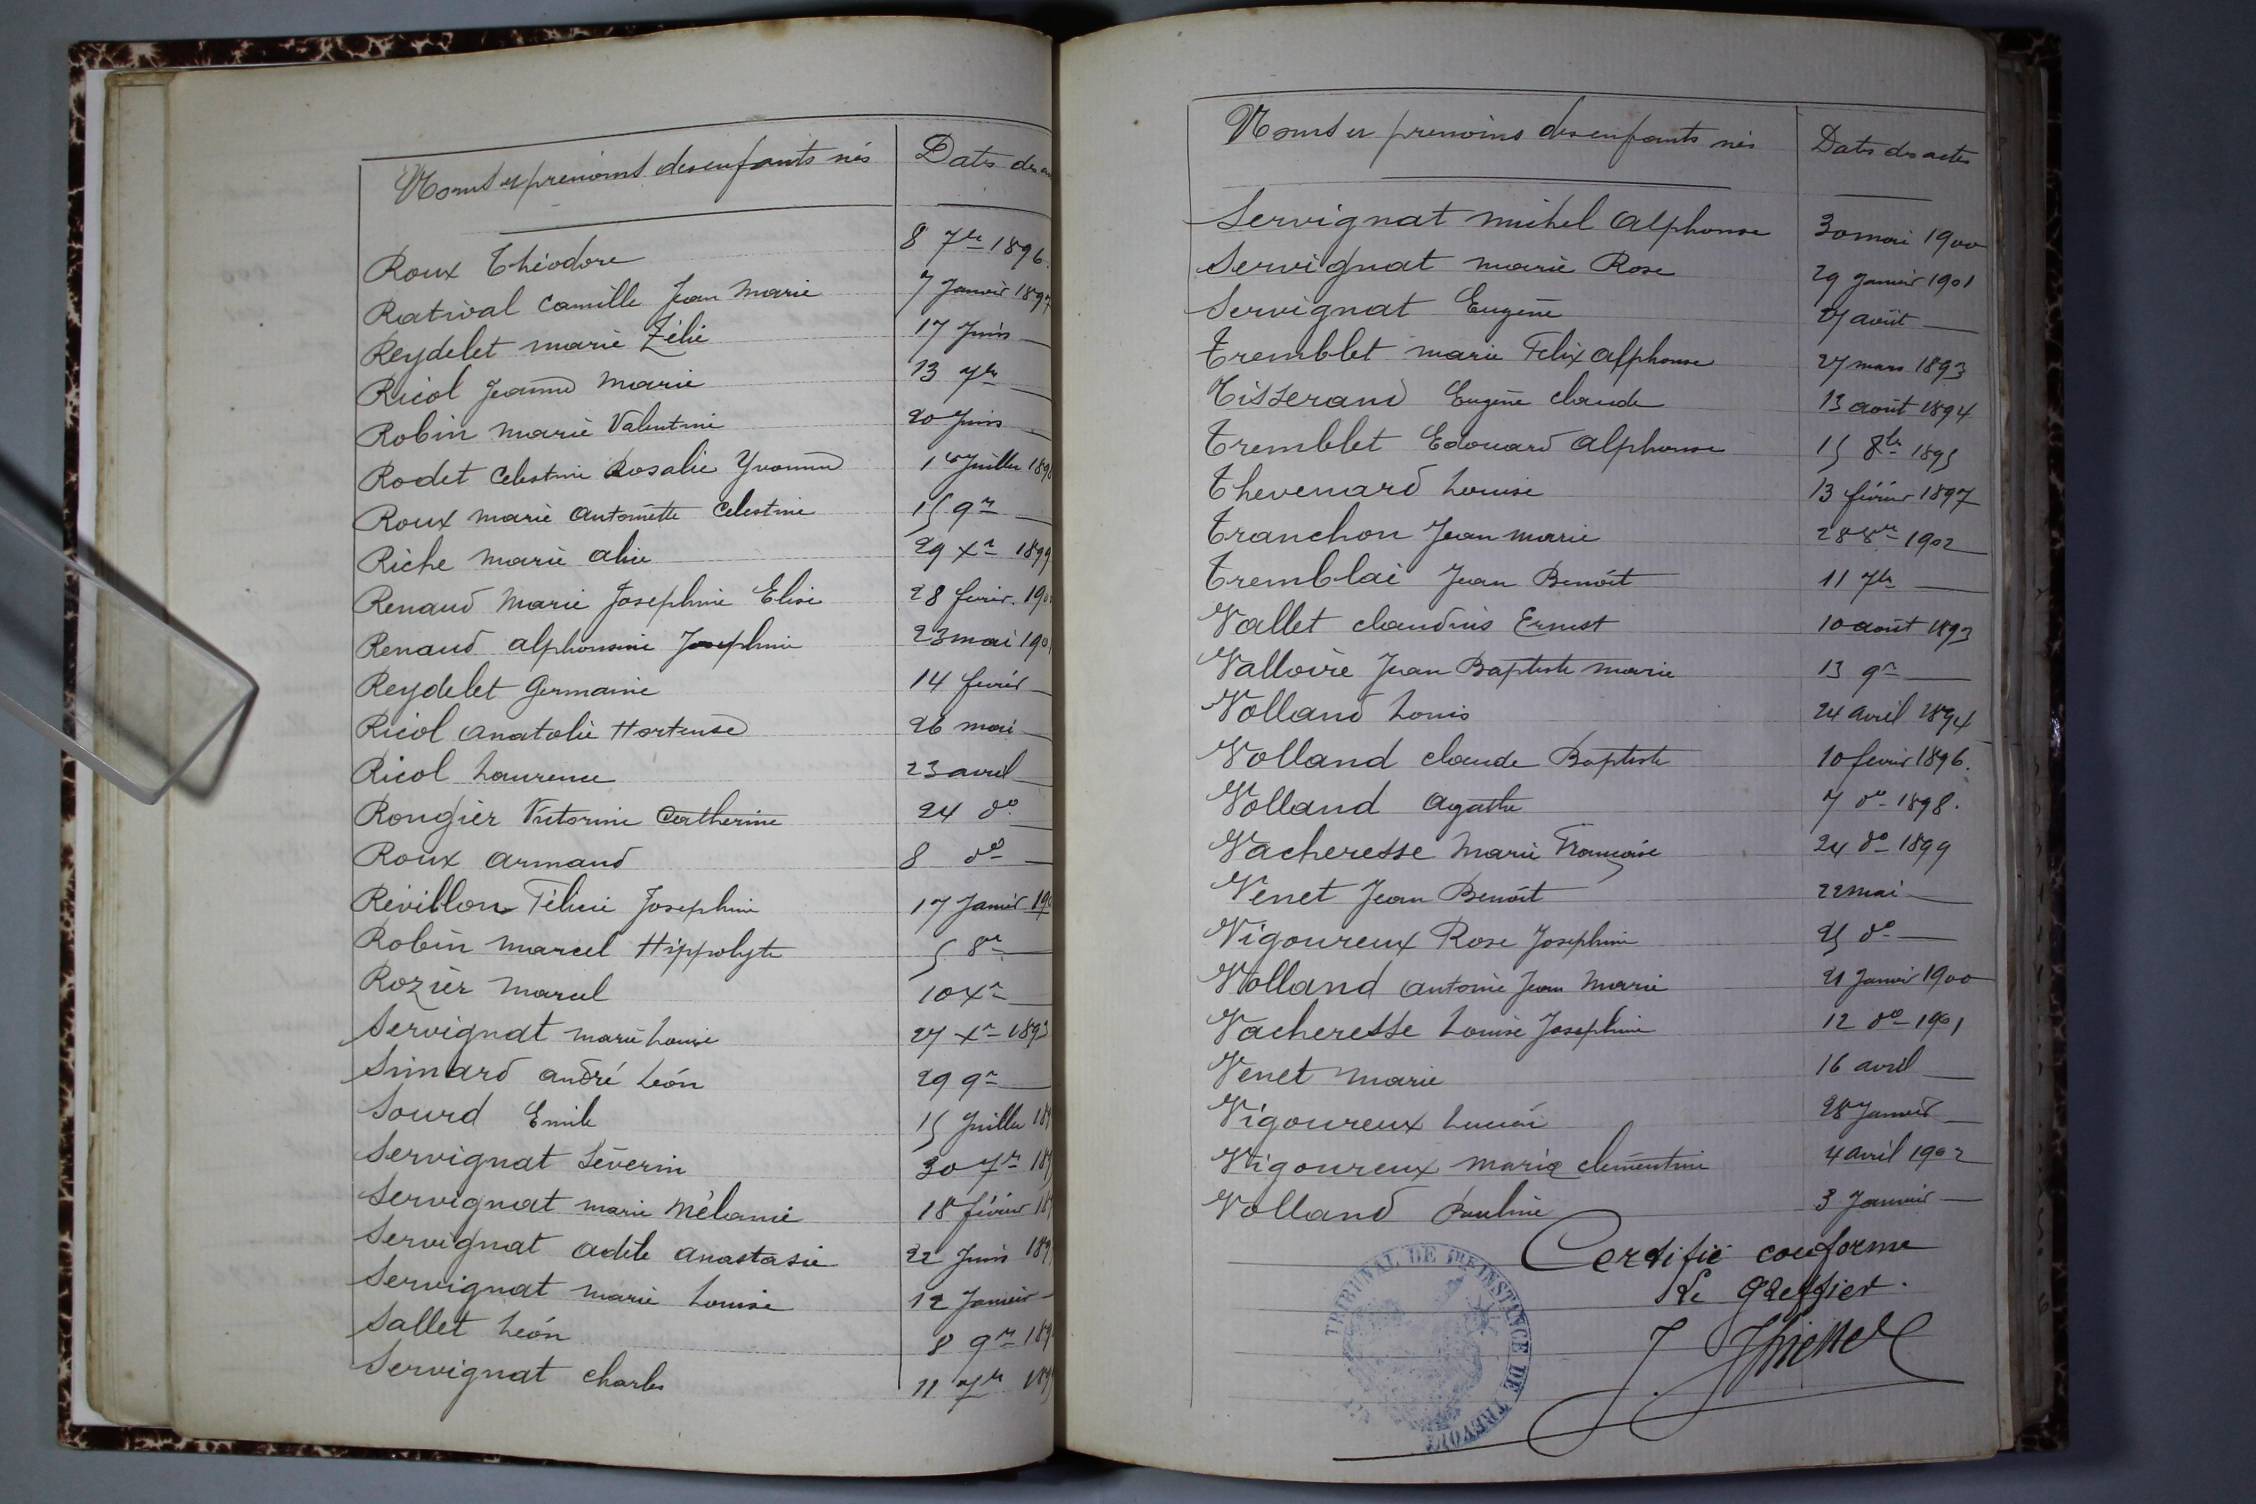 Noms et prénoms des enfants nés Dates des
Roux Théodore 8 7bre 1896.
Ratival Camille Jean Marie 7 Janvier 1897
Reydelet marie Zélie 17 Juin —
Ricol Jeanne Marie 13 7bre —
Robin Marie Valentine 20 Juin —
Rodet Celestine Rosalie Yvonne 1er Juillet 189
Roux marie Antoinette Celestine 15 9re —
Riche Marie Alice 29 Xre 1899
Renaud Marie Josephine Elise 28 fevrier. 190
Renaud Alphonsine Josephine 23 mai 190
Reydelet Germaine 14 fevrier —
Ricol Anatolie Hortense 26 mai —
Ricol Laurence 23 avril —
Rougier Victorine Catherine 24 do —
Roux Armand 8 do —
Révillon Félicie Josephine 17 Janvier 190
Robin Marcel Hippolyte 5 8re —
Rozier Marcel 10 Xre —
Servignat marie Louise 27 Xre 1893
Simard André Léon 29 9re —
Sourd Emile 15 Juillet 189
Servignat Séverin 30 7re 189
Servignat marie Mélanie 18 février 189
Servignat Adèle Anastasie 22 Juin 189
Servignat marie Louise 12 Janvier —
Sallet Léon 8 9re 189
Servignat Charles 11 7bre 189
Noms et prénoms des enfants nés Dates des actes
Servignat Michel Alphonse 30 mai 1900
Servignat marie Rose 29 Janvier 1901
Servignat Eugène 27 août —
Tremblet marie Félix Alphonse 27 mars 1893
Tisserand Eugène Claude 13 août 1894
Tremblet Edouard Alphonse 15 8bre 1895
Thevenard Louise 13 février 1897
Tranchon Jean Marie 28 8re 1902
Tremblai Jean Benoit 11 7bre —
Vallet Claudius Ernest 10 août 1893
Valloire Jean Baptiste Marie 13 9re —
Volland Louis 24 avril 1894
Volland Claude Baptiste 10 fevrier 1896.
Volland Agathe 7 do 1898.
Vacheresse Marie Françoise 24 do 1899
Venet Jean Benoit 22 mai —
Vigoureux Rose Josephine 25 do —
Volland Antoine Jean Marie 21 Janvier 1900
Vacheresse Louise Josephine 12 do 1901
Venet Marie 16 avril —
Vigoureux Lucien 28 Janvier —
Vigoureux Marie Clementine 4 avril 1902
Volland Pauline 3 Janvier —
Certifié conforme
Le Greffier.
TRIBUNAL DE 1RE INSTANCE DE TREVOUX